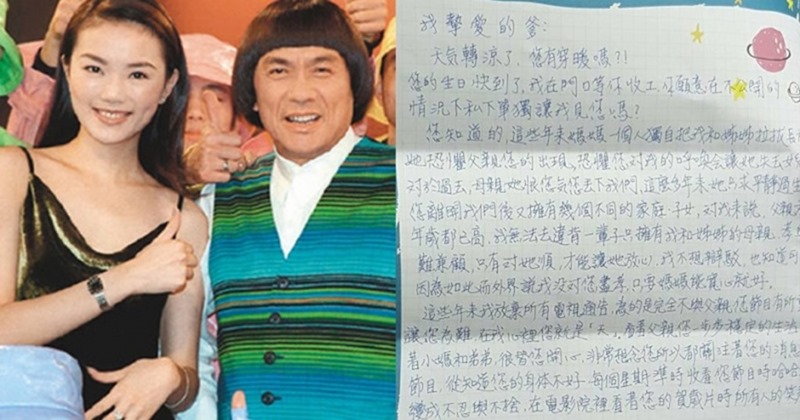 我摯愛的爹:
天氣轉涼了,您有穿暖嗎?!
您的生日快到了,我在門口等你收工,你願意在不公開的
情況下和下單獨讓我見您嗎?
您知道的,這些年來媽媽一個人獨自把我和姊姊拉拔長
她恐懼父親您的出現,恐懼您對我的呼喚會讓她失去
對於過去,母親她恨您氣您丟下我們,這麼多年來她只求平靜過生
您離開我們後又擁有幾個不同的家庭、子女,對我來說,父親
年歲都已高,我無法去違背一輩子只擁有我和姊姊的母親,孝
難兼顧,只有對她順,才能讓她放心,我不想辯駁,也知道
因為如此而外界議我沒對您盡孝,只要媽媽能寬心就好。
這些年來我放棄所有電視通告,為的是完全不與父親您節目有所
讓您為難,在我心裡您就是「天」,看著父親您一步步穩定的生活
著小媽和弟弟,很替您開心,非常想念您所以都關注著您的消息
節目,從知道您的身体不好,每個星期準時收看您節目時哈哈
變成不忍與不捨,在電影院裡看著您的賀歲片時所有人的笑